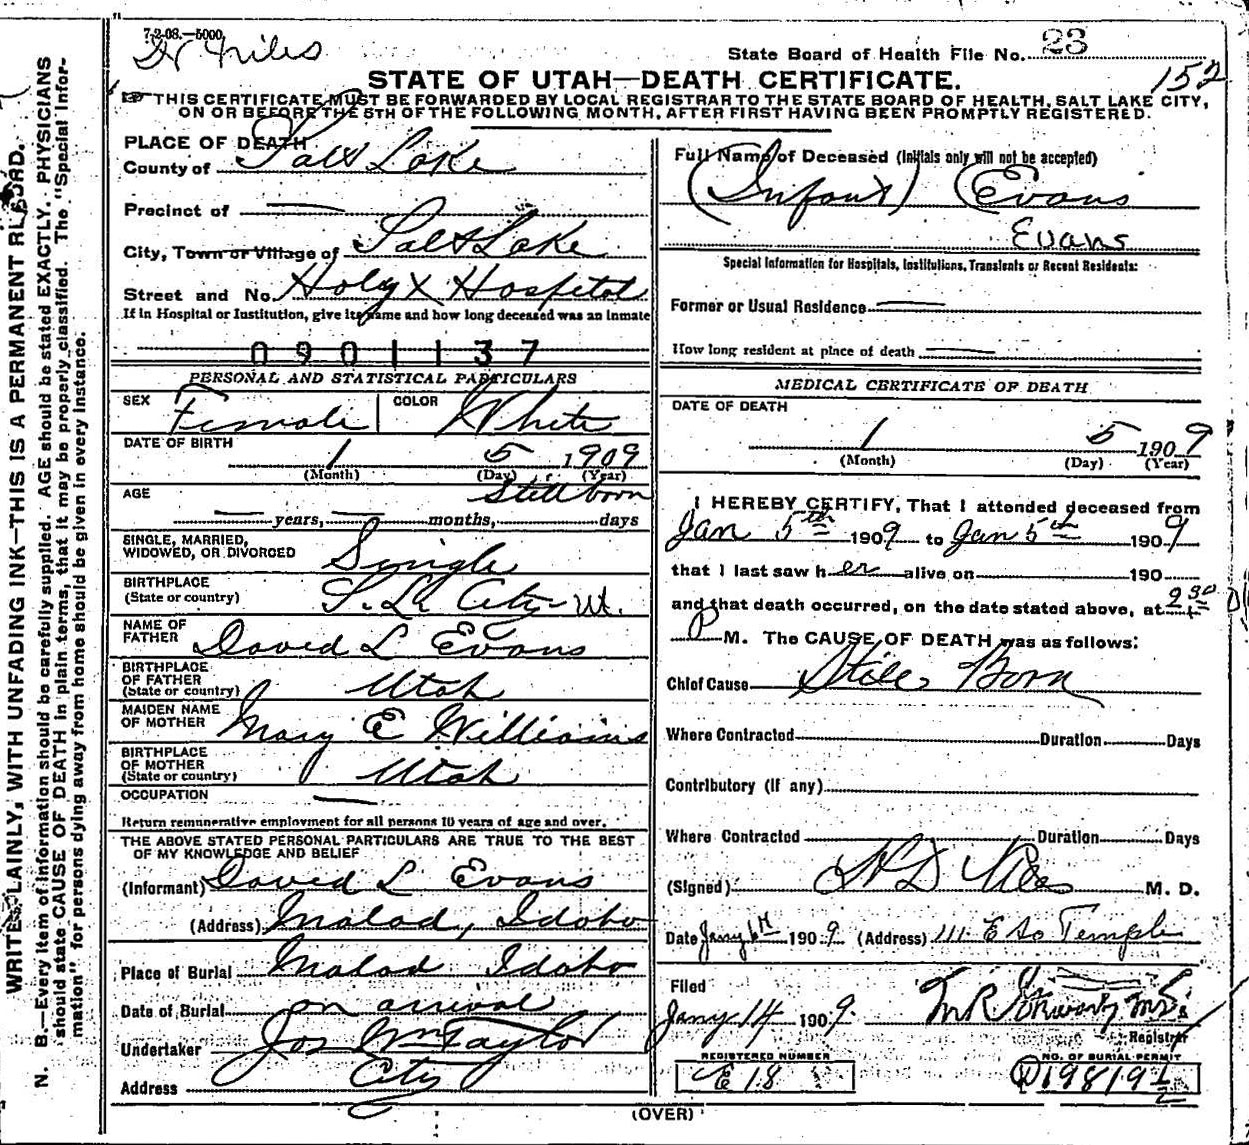 7-2-08.—5000.
Dr Niles
State Board of Health File No. 23
152
STATE OF UTAH—DEATH CERTIFICATE.
THIS CERTIFICATE MUST BE FORWARDED BY LOCAL REGISTRAR TO THE STATE BOARD OF HEALTH, SALT LAKE CITY,
ON OR BEFORE THE 5TH OF THE FOLLOWING MONTH, AFTER FIRST HAVING BEEN PROMPTLY REGISTERED.
WRITE PLAINLY, WITH UNFADING INK—THIS IS A PERMANENT RECORD.
N. B.—Every item of information should be carefully supplied. AGE should be stated EXACTLY. PHYSICIANS
should state CAUSE OF DEATH in plain terms, that it may be properly classified. The "Special Infor-
mation" for persons dying away from home should be given in every instance.
PLACE OF DEATH
County of Salt Lake
Precinct of
City, Town or Village of Salt Lake
Street and No. Holy X Hospital
If in Hospital or Institution, give its name and how long deceased was an inmate
0901137
PERSONAL AND STATISTICAL PARTICULARS
SEX Female COLOR White
DATE OF BIRTH
1 5 1909
(Month) (Day) (Year)
AGE Stillborn
years, months, days
SINGLE, MARRIED,
WIDOWED, OR DIVORCED Single
BIRTHPLACE
(State or country) S. L. City Ut.
NAME OF
FATHER David L Evans
BIRTHPLACE
OF FATHER
(State or country) Utah
MAIDEN NAME
OF MOTHER Mary E Williams
BIRTHPLACE
OF MOTHER
(State or country) Utah
OCCUPATION
Return remunerative employment for all persons 10 years of age and over.
THE ABOVE STATED PERSONAL PARTICULARS ARE TRUE TO THE BEST
OF MY KNOWLEDGE AND BELIEF
(Informant) David L Evans
(Address) Malad, Idaho
Place of Burial Malad Idaho
Date of Burial on arrival
Undertaker Jos Wm Taylor
Address City
Full Name of Deceased (Initials only will not be accepted)
(Infant) (Evans
Evans
Special Information for Hospitals, Institutions, Transients or Recent Residents:
Former or Usual Residence
How long resident at place of death
MEDICAL CERTIFICATE OF DEATH
DATE OF DEATH
1 5 1909
(Month) (Day) (Year)
I HEREBY CERTIFY, That I attended deceased from
Jan 5th 1909 to Jan 5th 1909
that I last saw her alive on 190
and that death occurred, on the date stated above, at 9 30
P M. The CAUSE OF DEATH was as follows:
Chief Cause Still Born
Where Contracted Duration Days
Contributory (if any)
Where Contracted Duration Days
(Signed) H D Niles M. D.
Date Jany 6th 1909 (Address) 111 E So Temple
Filed
Jany 14 1909.
Registrar
REGISTERED NUMBER
E 18
NO. OF BURIAL PERMIT
D19819½
(OVER)